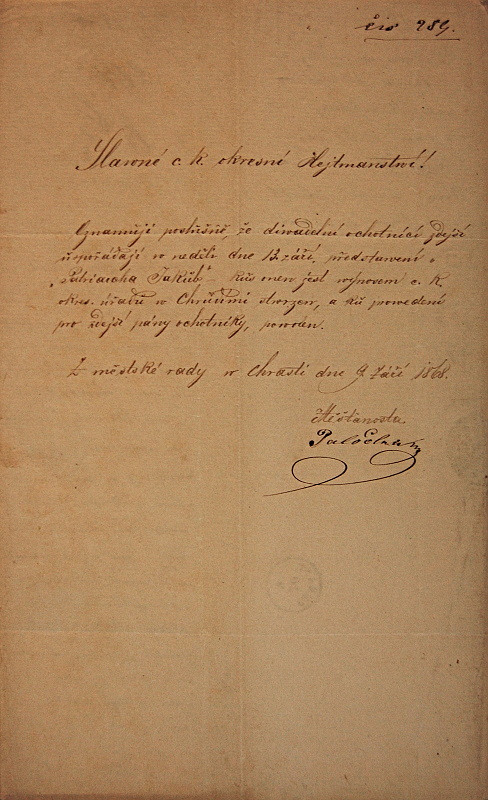 čís 989.
Slavné c. k. okresní Hejtmanství!
Oznamuji poslušně, že divadelní ochotníci zdejší
uspořádají v neděli dne 13. září, představení
„Patriarcha Jakub" kus onen jest výnosem c. k.
okres. úřadu v Chrudimi stvrzen, a ku provedení
pro zdejší pány ochotníky, povolen.
Z městské rady w Chrasti dne 9. září 1868.
Měšťanosta